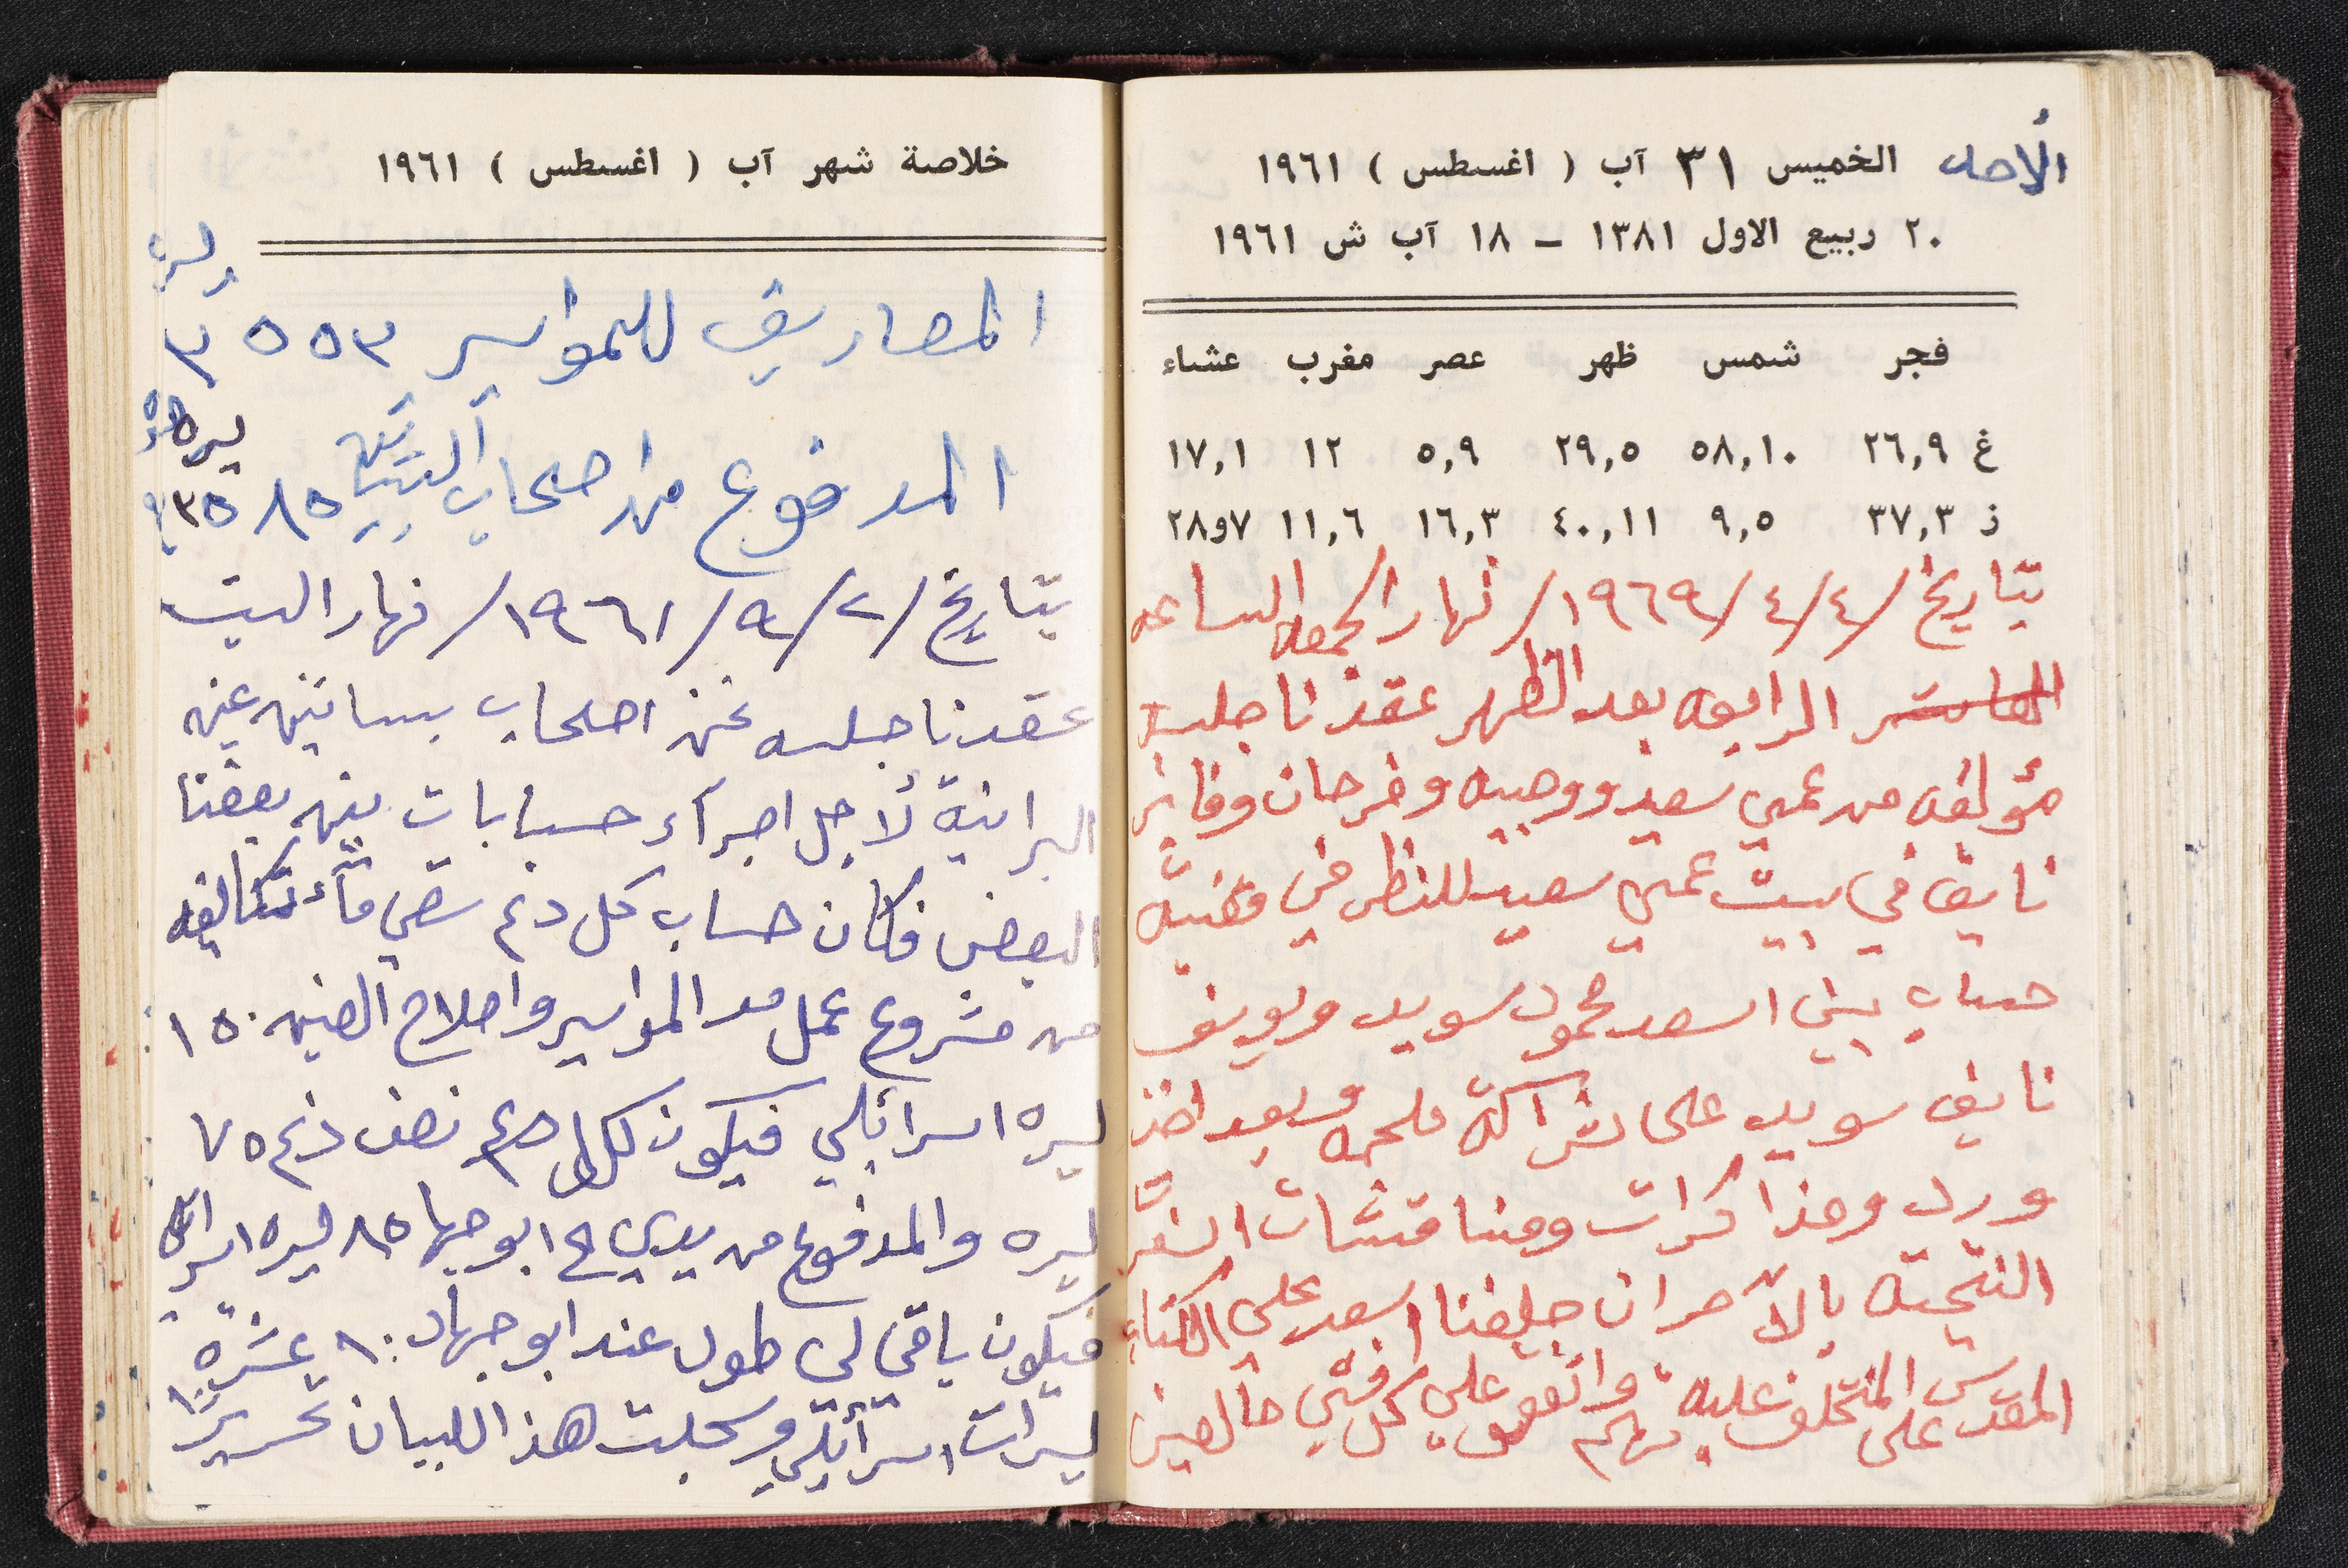 الأحد الخميس ٣١ آب ( اغسطس ) ١٩٦١
٢٠ ربيع الاول ١٣٨١ – ١٨ آب ش ١٩٦١
فجر شمس ظهر عصر مغرب عشاء
غ ٢٦,٩ ٥٨,١٠ ٢٩,٥ ٥,٩ ١٢ ١٧,١
ز ٣٧,٣ ٩,٥ ٤٠,١١ ١٦,٣ ١١,٦ ٧و٢٨
بتاريخ /٤/٤/١٩٦٩/ نهار الجمعه الساعه
الرابعه بعد الظهر عقدنا جلسة
مؤلفه من عمي سعيد ووجيه وفرحان وفايز
نايف في بيت عمي سعيد للنظر في قضية
حساب بيني اسعد محمود سويد وبين
نايف سويد على شراكة ملحمه وبعد اخذ
ورد ومذاكرات ومناقشات
النتيجه بالآخر ان حلفنا اسعد على الكتاب
المقدس المتخلف عليه واتفق على كل شي خالصين
على
خلاصة شهر آب ( اغسطس ) ١٩٦١
ليره
المصاريف للمواسير ٣٥٥٣
ليره
المدفوع من اصحاب البساتين ٣٥٨٥
بتاريخ /٢/٩/١٩٦١/ نهار السبت
عقدنا جلسه نحن اصحاب بساتين عين
البرانية لأجل اجرآء حسابات بين بعضنا
البعض فكان حساب كل دنم سقي مآء تكاليفه
من مشروع عمل مد المواسير واصلاح العين ١٥٠
ليره اسرائلي فيكون لكل نصف دنم ٧٥
ليره والمدفوع من يدي ابو جهاد ٨٥ ليره اسرائلي
فيكون باقي لي طول عند ابو جهاد ١٠ عشرة
ليرات اسرآئلي وسجلت هذا البيان تحريرًا